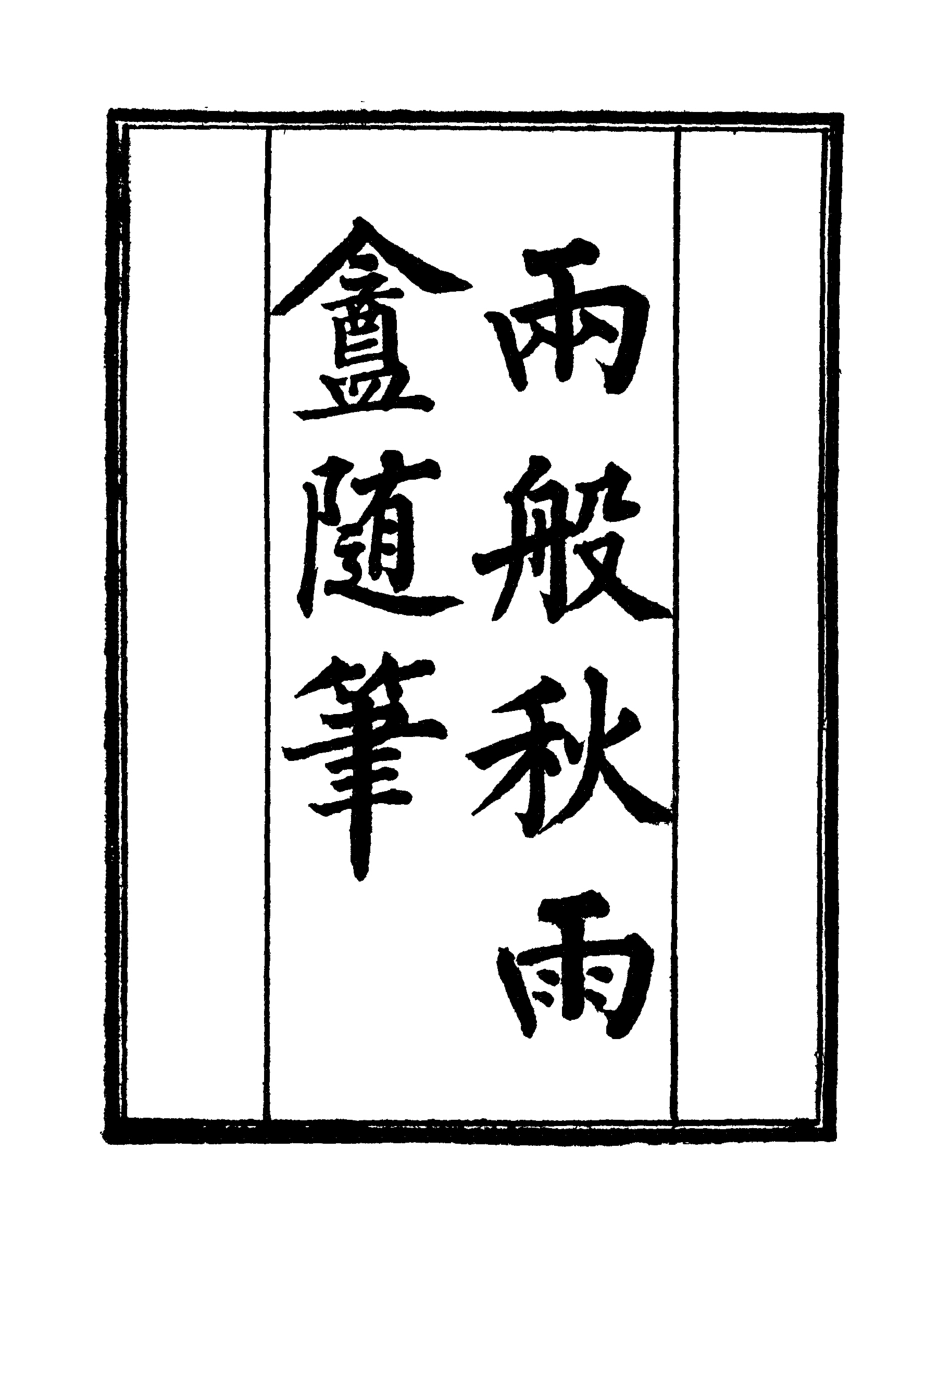 兩般秋雨
盦随筆